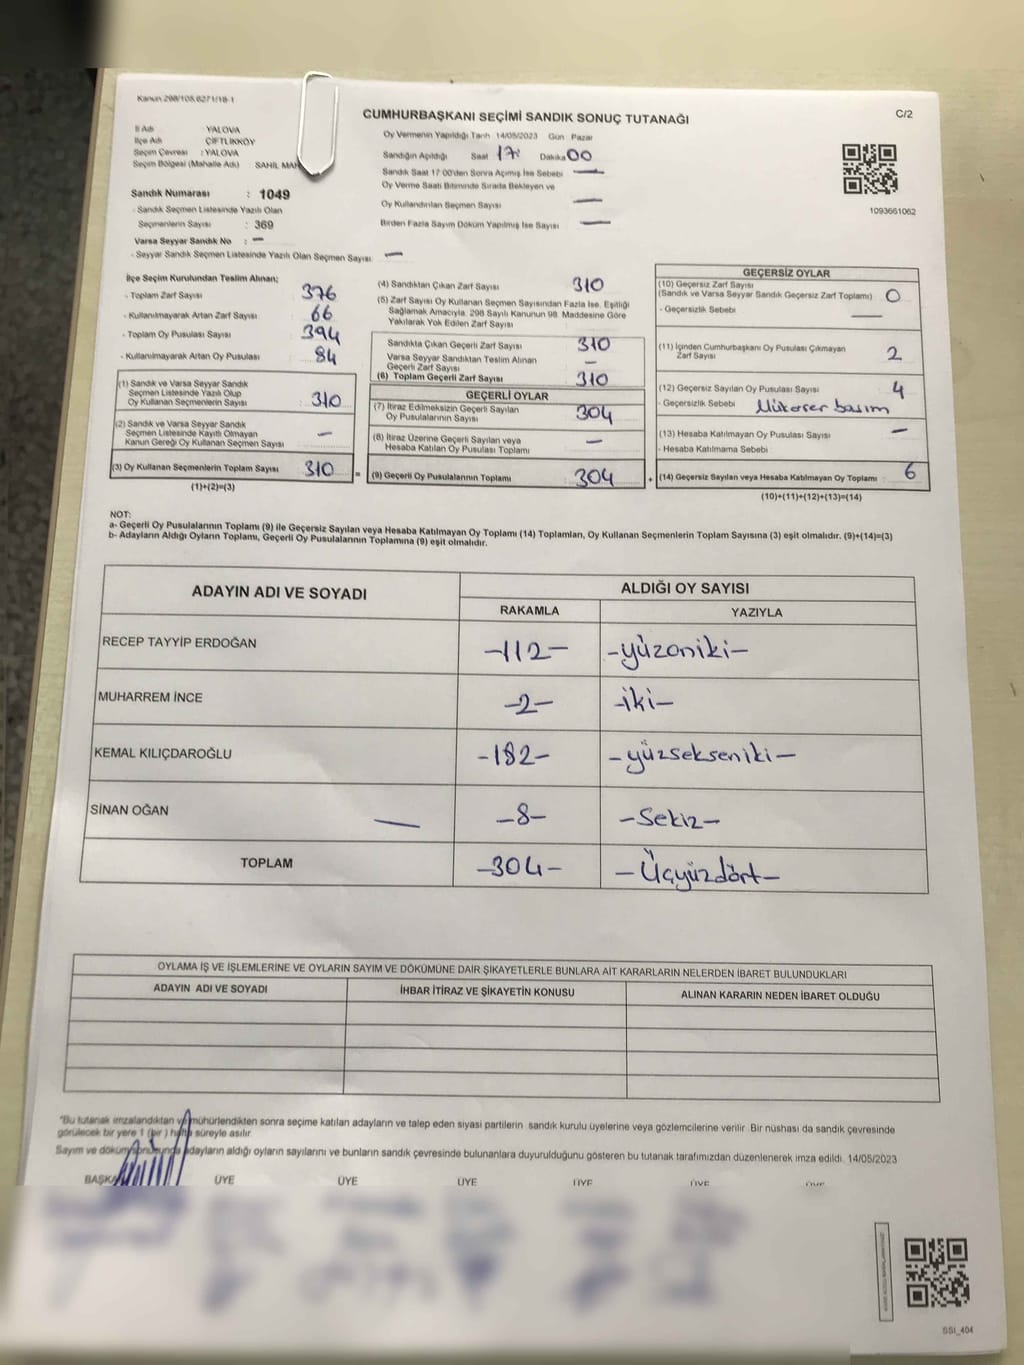 Kanun:298/105,6271/18-1
CUMHURBAŞKANI SEÇİMİ SANDIK SONUÇ TUTANAĞI
C/2
İl Adı YALOVA
İlçe Adı ÇİFTLİKKÖY
Seçim Çevresi : YALOVA
Seçim Bölgesi (Mahalle Adı) SAHİL MAH
Sandık Numarası : 1049
- Sandık Seçmen Listesinde Yazılı Olan
Seçmenlerin Sayısı : 369
Varsa Seyyar Sandık No : —
- Seyyar Sandık Seçmen Listesinde Yazılı Olan Seçmen Sayısı: —
Oy Vermenin Yapıldığı Tarih 14/05/2023 Gün Pazar
Sandığın Açıldığı Saat 17 Dakika 00
Sandık Saat 17:00'den Sonra Açılmış İse Sebebi —
Oy Verme Saati Bitiminde Sırada Bekleyen ve
Oy Kullandırılan Seçmen Sayısı —
Birden Fazla Sayım Döküm Yapılmış İse Sayısı —
1093661062
İlçe Seçim Kurulundan Teslim Alınan;
- Toplam Zarf Sayısı 376
- Kullanılmayarak Artan Zarf Sayısı : 66
- Toplam Oy Pusulası Sayısı : 394
- Kullanılmayarak Artan Oy Pusulası : 84
(1) Sandık ve Varsa Seyyar Sandık
Seçmen Listesinde Yazılı Olup
Oy Kullanan Seçmenlerin Sayısı : 310
(2) Sandık ve Varsa Seyyar Sandık
Seçmen Listesinde Kayıtlı Olmayan
Kanun Gereği Oy Kullanan Seçmen Sayısı —
(3) Oy Kullanan Seçmenlerin Toplam Sayısı 310 =
(1)+(2)=(3)
(4) Sandıktan Çıkan Zarf Sayısı 310
(5) Zarf Sayısı Oy Kullanan Seçmen Sayısından Fazla İse, Eşitliği
Sağlamak Amacıyla, 298 Sayılı Kanunun 98. Maddesine Göre
Yakılarak Yok Edilen Zarf Sayısı :
Sandıkta Çıkan Geçerli Zarf Sayısı 310
Varsa Seyyar Sandıktan Teslim Alınan
Geçerli Zarf Sayısı —
(6) Toplam Geçerli Zarf Sayısı 310
GEÇERLİ OYLAR
(7) İtiraz Edilmeksizin Geçerli Sayılan
Oy Pusulalarının Sayısı 304
(8) İtiraz Üzerine Geçerli Sayılan veya
Hesaba Katılan Oy Pusulası Toplamı —
(9) Geçerli Oy Pusulalarının Toplamı : 304 +
GEÇERSİZ OYLAR
(10) Geçersiz Zarf Sayısı
(Sandık ve Varsa Seyyar Sandık Geçersiz Zarf Toplamı) : 0
- Geçersizlik Sebebi —
(11) İçinden Cumhurbaşkanı Oy Pusulası Çıkmayan
Zarf Sayısı 2
(12) Geçersiz Sayılan Oy Pusulası Sayısı 4
- Geçersizlik Sebebi Mükerrer basım
(13) Hesaba Katılmayan Oy Pusulası Sayısı —
- Hesaba Katılmama Sebebi
(14) Geçersiz Sayılan veya Hesaba Katılmayan Oy Toplamı : 6
(10)+(11)+(12)+(13)=(14)
NOT:
a- Geçerli Oy Pusulalarının Toplamı (9) ile Geçersiz Sayılan veya Hesaba Katılmayan Oy Toplamı (14) Toplamları, Oy Kullanan Seçmenlerin Toplam Sayısına (3) eşit olmalıdır. (9)+(14)=(3)
b- Adayların Aldığı Oyların Toplamı, Geçerli Oy Pusulalarının Toplamına (9) eşit olmalıdır.
ADAYIN ADI VE SOYADI
ALDIĞI OY SAYISI
RAKAMLA YAZIYLA
RECEP TAYYİP ERDOĞAN -112- -yüzoniki-
MUHARREM İNCE -2- -iki-
KEMAL KILIÇDAROĞLU -182- -yüzsekseniki-
SİNAN OĞAN — -8- -Sekiz-
TOPLAM -304- -Üçyüzdört-
OYLAMA İŞ VE İŞLEMLERİNE VE OYLARIN SAYIM VE DÖKÜMÜNE DAİR ŞİKAYETLERLE BUNLARA AİT KARARLARIN NELERDEN İBARET BULUNDUKLARI
ADAYIN ADI VE SOYADI İHBAR İTİRAZ VE ŞİKAYETİN KONUSU ALINAN KARARIN NEDEN İBARET OLDUĞU
*Bu tutanak imzalandıktan ve mühürlendikten sonra seçime katılan adayların ve talep eden siyasi partilerin sandık kurulu üyelerine veya gözlemcilerine verilir. Bir nüshası da sandık çevresinde
görülecek bir yere 1 (bir ) hafta süreyle asılır.
Sayım ve döküm sonucunda adayların aldığı oyların sayılarını ve bunların sandık çevresinde bulunanlara duyurulduğunu gösteren bu tutanak tarafımızdan düzenlenerek imza edildi. 14/05/2023
BAŞKA ÜYE ÜYE ÜYE ÜYE ÜYE ÜYE
SSI_404